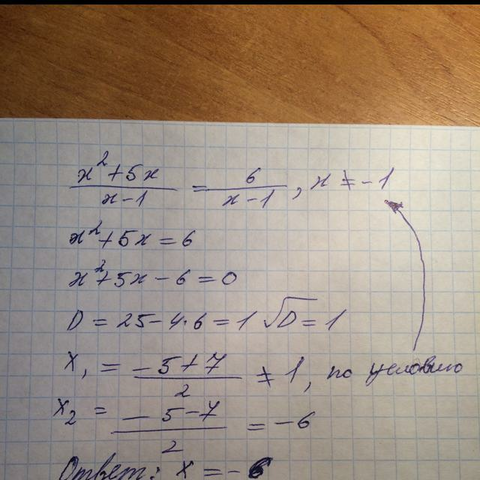 x²+5x / x-1 = 6 / x-1, x ≠ -1
x²+5x=6
x²+5x-6=0
D=25-4·6=1 √D=1
x₁ = -5+7 / 2 ≠ 1, по условию
x₂ = -5-7 / 2 = -6
Ответ: x=-6